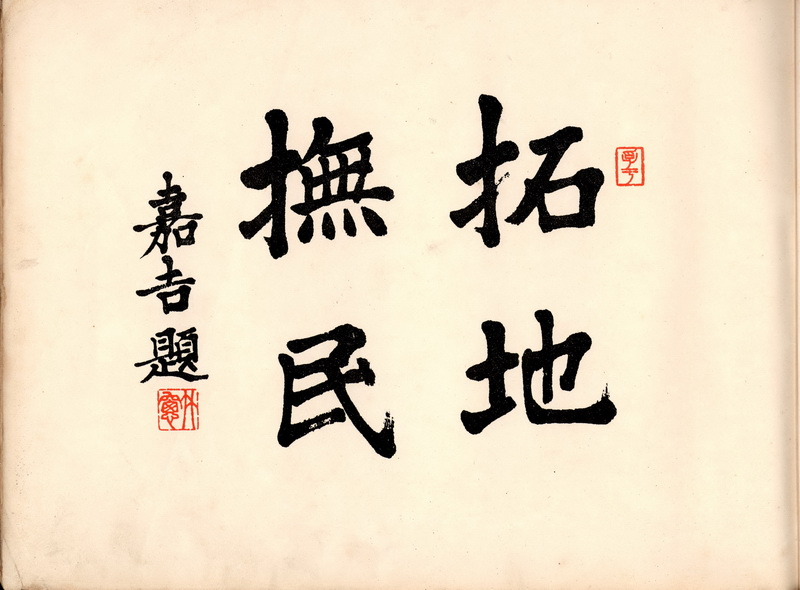 拓地
撫民
嘉吉題